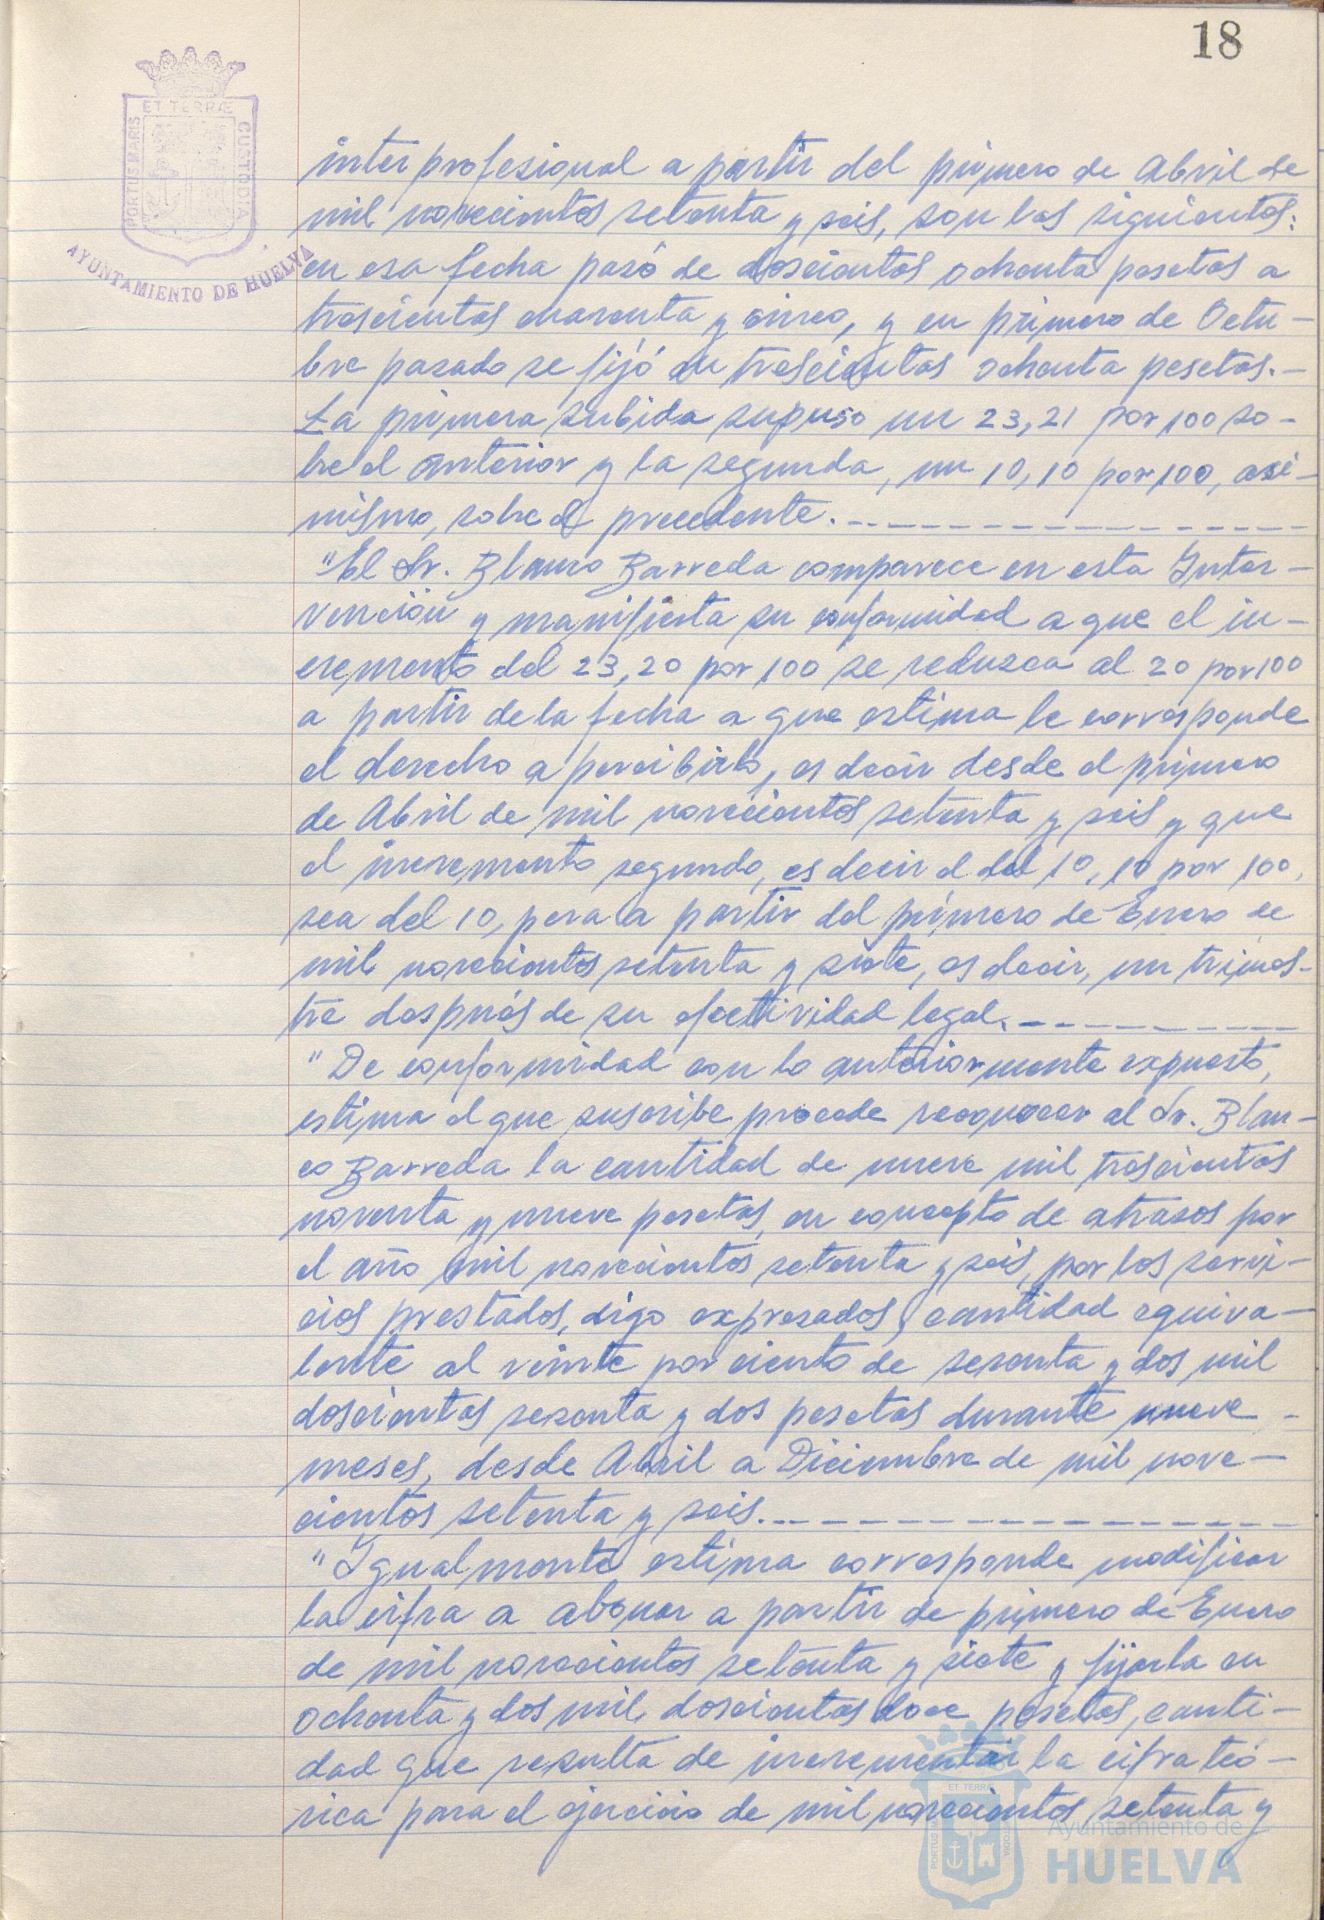 18
ET TERRÆ
PORTUS MARIS
CUSTODIA
AYUNTAMIENTO DE HUELVA
interprofesional a partir del primero de Abril de
mil novecientos setenta y seis, son las siguientes:
en esa fecha pasó de doscientas ochenta pesetas a
trescientas cuarenta y cinco, y en primero de Octu-
bre pasado se fijó en trescientas ochenta pesetas.-
La primera subida supuso un 23,21 por 100 so-
bre el anterior y la segunda, un 10,10 por 100, asi-
mismo, sobre el precedente.
"El Sr. Blanco Barreda comparece en esta Inter-
vención y manifiesta su conformidad a que el in-
cremento del 23,20 por 100 se reduzca al 20 por 100
a partir de la fecha a que estima le corresponde
el derecho a percibirlo, es decir desde el primero
de Abril de mil novecientos setenta y seis y que
el incremento segundo, es decir el del 10,10 por 100,
sea del 10, pera a partir del primero de Enero de
mil novecientos setenta y siete, es decir, un trimes-
tre después de su efectividad legal.
"De conformidad con lo anteriormente expuesto,
estima el que suscribe procede reconocer al Sr. Blan-
co Barreda la cantidad de nueve mil trescientas
noventa y nueve pesetas, en concepto de atrasos por
el año mil novecientos setenta y seis, por los servi-
cios prestados, digo expresados, cantidad equiva-
lente al veinte por ciento de sesenta y dos mil
doscientas sesenta y dos pesetas durante nueve -
meses, desde Abril a Diciembre de mil nove-
cientos setenta y seis.
"Igualmente estima corresponde modificar
la cifra a abonar a partir de primero de Enero
de mil novecientos setenta y siete y fijarla en
ochenta y dos mil doscientas doce pesetas, canti-
dad que resulta de incrementar la cifra teó-
rica para el ejercicio de mil novecientos setenta y
Ayuntamiento de
HUELVA